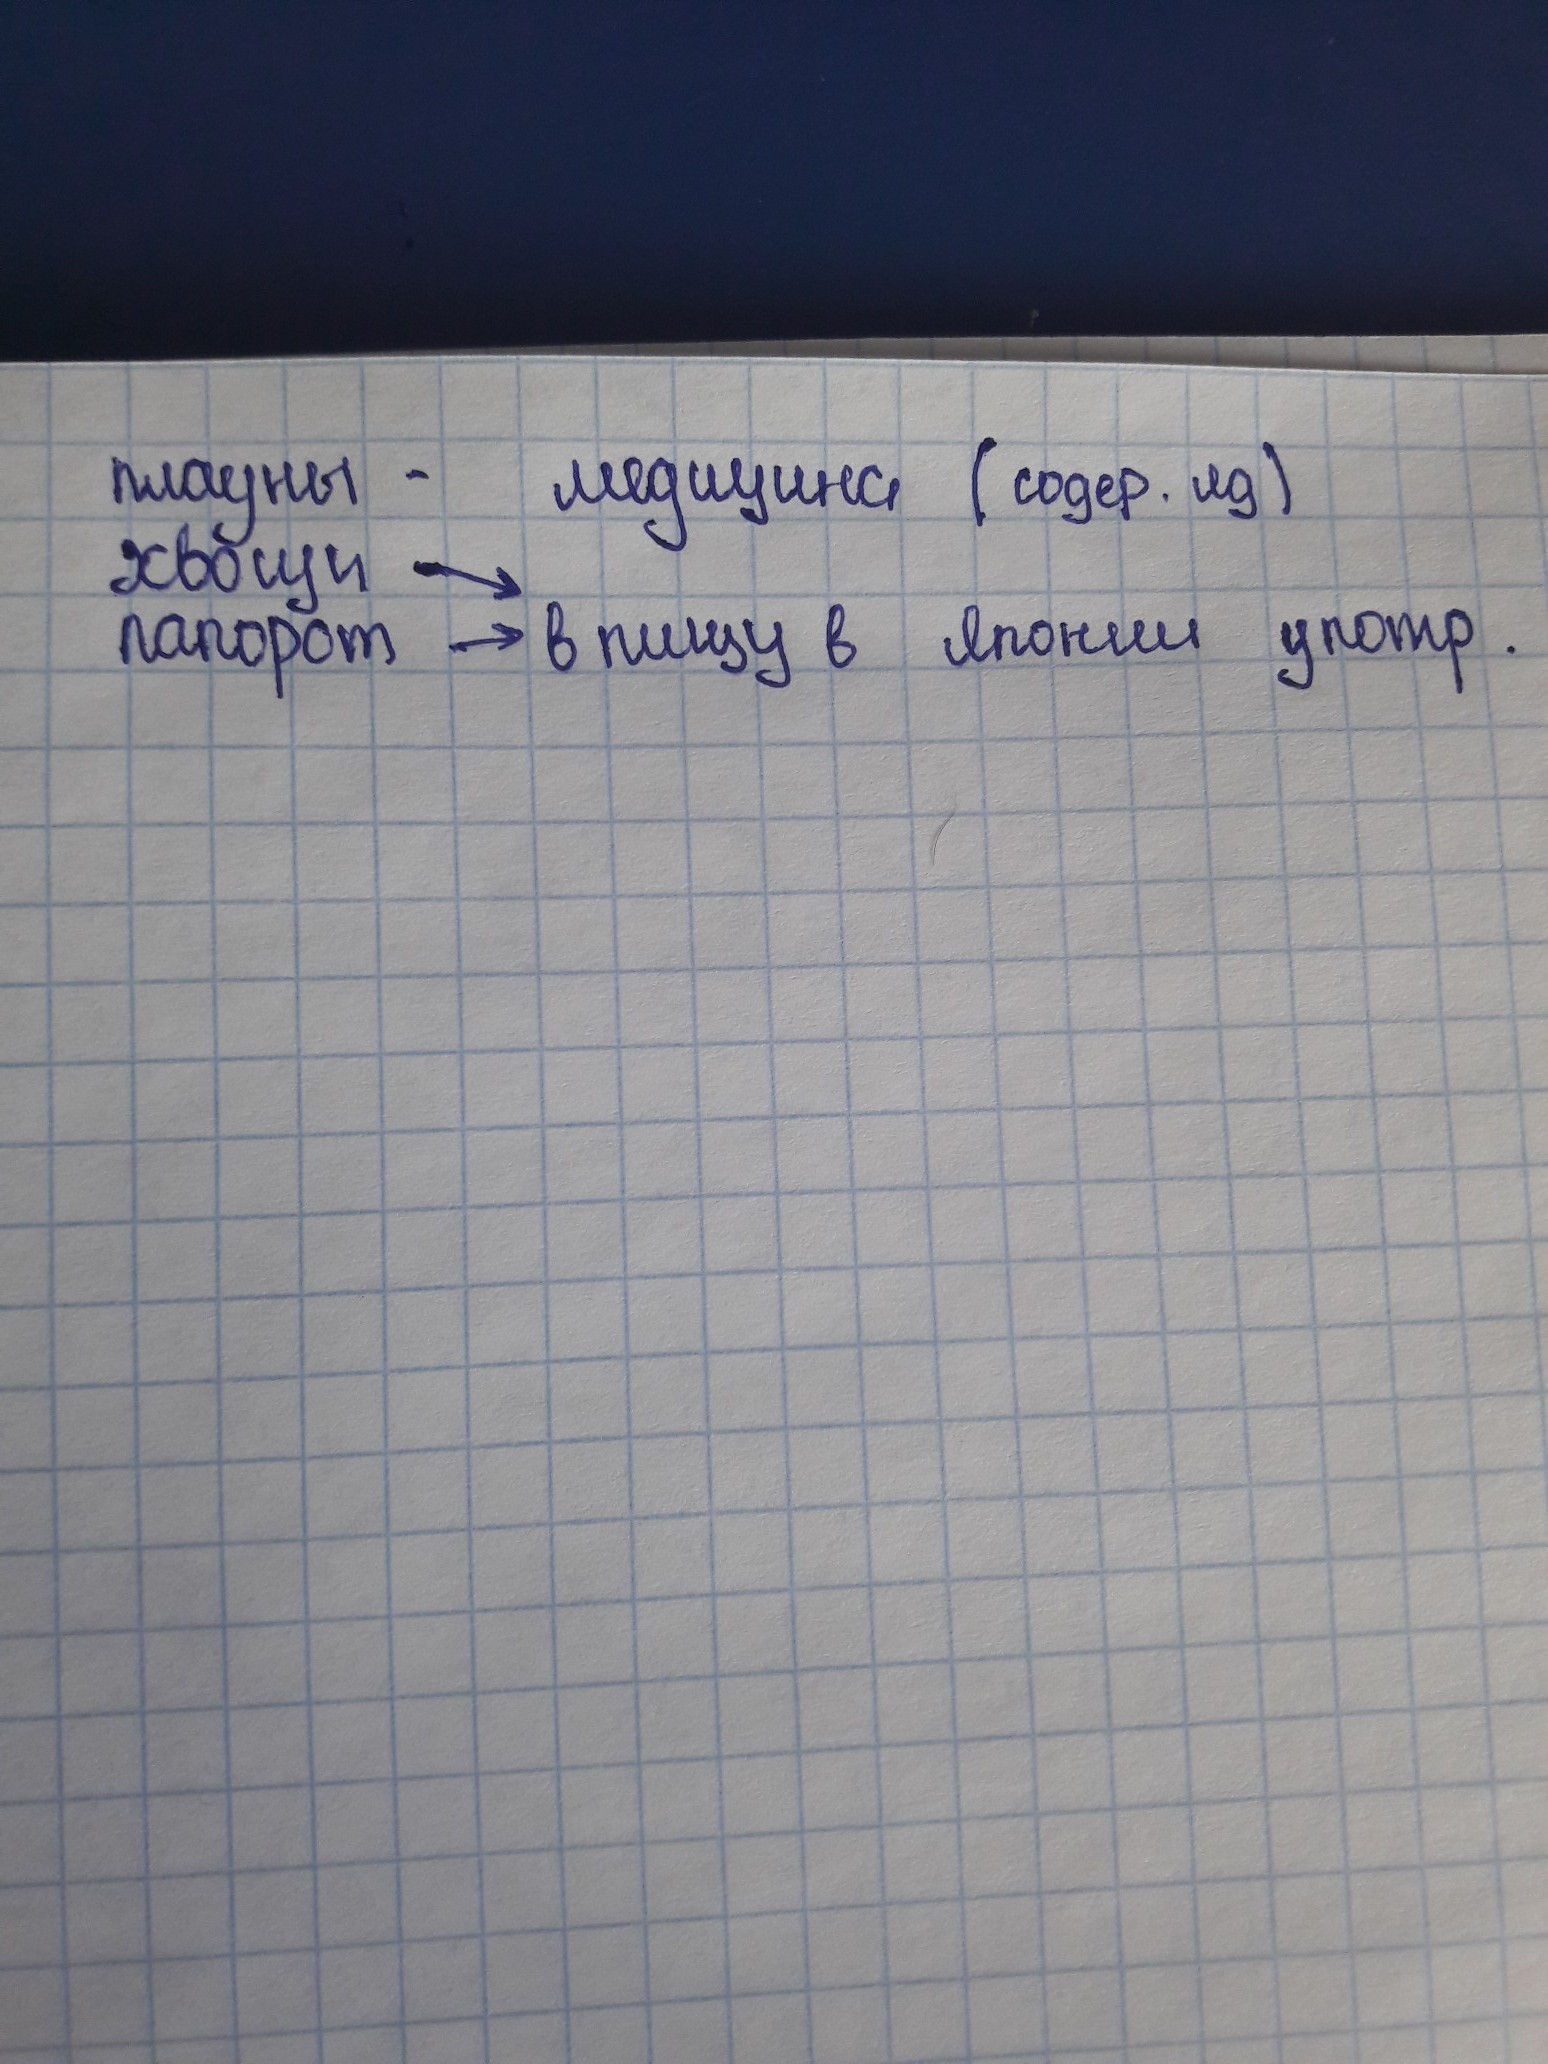 плауны - медицина (содер. яд)
хвощи →
папорот → в пищу в японии употр.